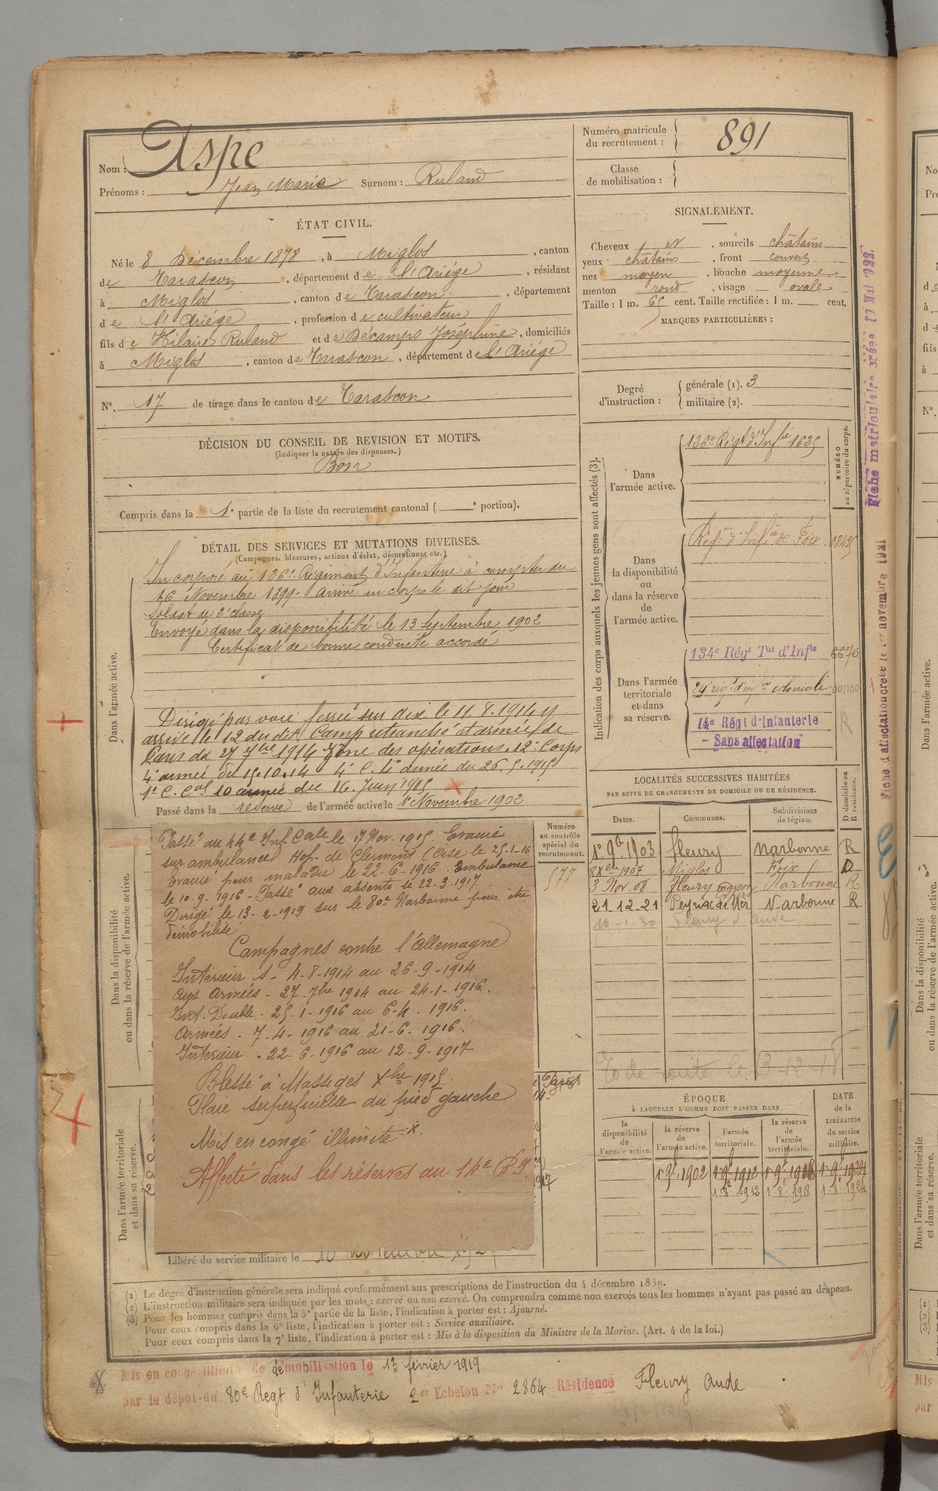 Nom : Aspe
Prénoms : Jean Marie Surnom : Ruland
Numéro matricule du recrutement : 891
Classe de mobilisation :
ÉTAT CIVIL.
Né le 8 Décembre 1878, à Miglos, canton
de Tarascon, département de l'Ariège, résidant
à Miglos, canton de Tarascon, département
de l'Ariège, profession de cultivateur
fils de Hilaire Ruland et de Décamps Joséphine, domiciliés
à Miglos, canton de Tarascon, département de l'Ariège
N° 17 de tirage dans le canton de Tarascon
SIGNALEMENT.
Cheveux N, sourcils châtains
yeux châtains, front couvert
nez moyen, bouche moyenne
menton rond, visage ovale
Taille : 1 m. 65 cent. Taille rectifiée : 1 m. cent.
MARQUES PARTICULIÈRES :
Degré d'instruction : générale (1). 3
militaire (2).
DÉCISION DU CONSEIL DE REVISION ET MOTIFS.
(Indiquer la nature des dispenses.)
Bon
Compris dans la 1e partie de la liste du recrutement cantonal ( e portion).
DÉTAIL DES SERVICES ET MUTATIONS DIVERSES.
(Campagnes, blessures, actions d'éclat, décorations, etc.)
Dans l'armée active.
Incorporé au 136e Régiment d'Infanterie à compter du
16 Novembre 1899. Arrivé au corps le dit jour
Soldat de 2e classe
Envoyé dans la disponibilité le 13 Septembre 1902
Certificat de bonne conduite accordé
Dirigé par voie ferrée sur le 11.8.1914 y
arrive le 12 du dit Camp retranché d'armée de
Paris du 27 7bre 1914 Zone des opérations. 12e Corps
4e armée du 15.10.14
1e C. Cal 10 armée du 16. Juin 1915
Passé dans la réserve de l'armée active le 1er Novembre 1902
Indication des corps auxquels les jeunes gens sont affectés (3).
NUMÉRO au répertoire du corps.
Dans l'armée active.
136e Régt d'Infie 1635
Dans la disponibilité ou dans la réserve de l'armée active.
Régt d'Infie de Foix
Dans l'armée territoriale et dans sa réserve.
134e Régt Tal d'Infie
14e Régt d'Infanterie
– Sans affectation
R
Fiche matriculaire
Fiche d'affectation créée le 1er novembre 1921
LOCALITÉS SUCCESSIVES HABITÉES
PAR SUITE DE CHANGEMENTS DE DOMICILE OU DE RÉSIDENCE.
Dates. Communes. Subdivisions de région. D domicile ou R résidence.
1er 9b 1903 Fleury Narbonne R
1907 Miglos Foix D
3 Nov. 08 Fleury Narbonne R
21-12-21 Narbonne R
Fleury d'Aude
Dans la disponibilité ou dans la réserve de l'armée active.
Numéro au contrôle spécial du recrutement.
577
Passé au 44e Inf. Cale le 17 Nov. 1915 Evacué
sur ambulance Hop. de Clermont (Oise le 25.1.16
Evacué pour maladie le 22.6.1916 Ambulance
le 10.9.1916 - Passé aux absents le 22-3-1917
Dirigé le 13-2-1919 sur le 80e Narbonne pour être
démobilisé
Campagnes contre l'Allemagne
Intérieur 4-8-1914 au 26-9-1914
Aux Armées - 27 7bre 1914 au 24-1-1916.
Int. Double - 25-1-1916 au 6-4-1916.
Armées - 7-4-1916 au 21-6-1916.
Intérieur - 22-6-1916 au 12-9-1917
Blessé à Massiges Xbre 1915.
Plaie superficielle du pied gauche
Mis en congé illimité x.
Affecté dans les réserves au 14e R.I.
Dans l'armée territoriale et dans sa réserve.
Libéré du service militaire le 10 novembre
ÉPOQUE
À LAQUELLE L'HOMME DOIT PASSER DANS
DATE de la LIBÉRATION du service militaire.
la disponibilité de l'armée active. la réserve de l'armée active. l'armée territoriale. la réserve de l'armée territoriale.
1 9b 1902
1-8-1912 1-8-1918
(1) Le degré d'instruction générale sera indiqué conformément aux prescriptions de l'instruction du 4 décembre 1889.
(2) L'instruction militaire sera indiquée par les mots : exercé ou non exercé. On comprendra comme non exercés tous les hommes n'ayant pas passé au drapeau.
(3) Pour les hommes compris dans la 5e partie de la liste, l'indication à porter est : Ajourné.
Pour ceux compris dans la 6e liste, l'indication à porter est : Service auxiliaire.
Pour ceux compris dans la 7e liste, l'indication à porter est : Mis à la disposition du Ministre de la Marine. (Art. 4 de la loi.)
X Mis en congé illimité de démobilisation le 13 février 1919
par le dépôt du 80e Régt d'Infanterie 2e Echelon N° 2864 Résidence Fleury Aude